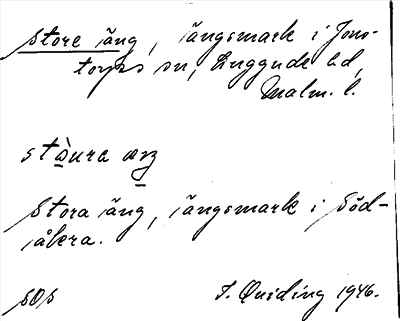 store äng, ängsmark i Jons-
torps sn, Luggude hd,
Malm. l.
stòura æŋ
Stora äng, ängsmark i Söd-
åkra.
sOs I. Quiding 1946.